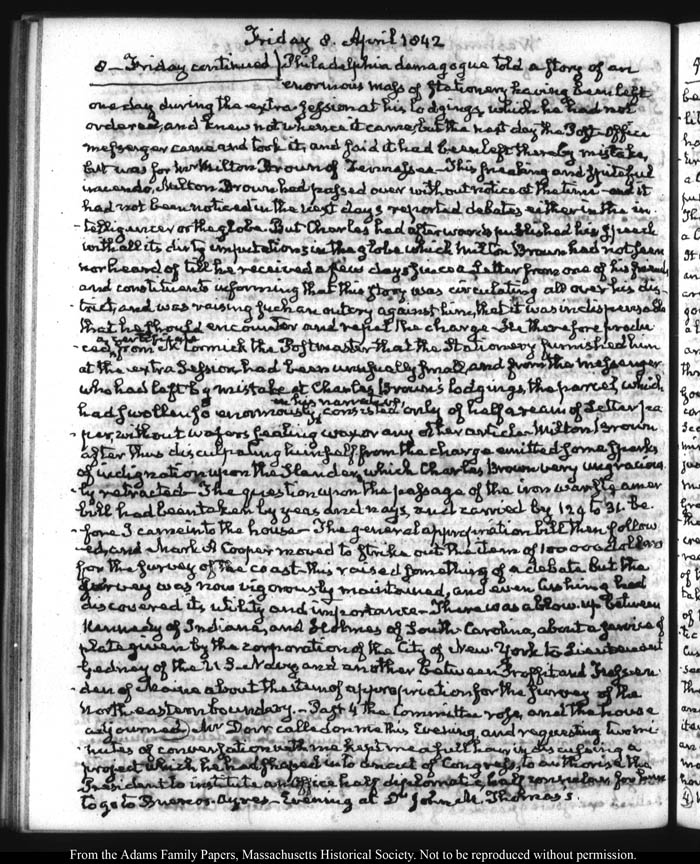 Friday 8. April 1842
8 – Friday continued) Philadelphia demagogue told a story of an
enormous mass of Stationery having been left
one day during the extra Session at his lodgings, which he had not
ordered, and knew not whence it came, but the next day the Post-Office
messenger came and took it, and said it had been left there by mistake,
but was for Mr Milton Brown of Tennessee – This sneaking and spiteful
innuendo, Milton Brown had passed over without notice at the time – and it
had not been noticed in the next days reported debates either in the in-
-telligencer or the globe. But Charles had afterwards published his Speech
with all its dirty imputations in the globe which Milton Brown had not seen
nor heard of till he received a few days since a Letter from one of his friends
and constituents informing that this story was circulating all over his dis-
-trict, and was raising such an outcry against him, that it was indispensable
that he should encounter and repel the charge – He therefore produ-
a certificate
-ced, from McCormick the Postmaster that the Stationery furnished him
at the extra Session had been unusually small, and from the messenger
who had left by mistake at Charles Brown's lodgings the parcel which
in his narrative,
had swollen so enormously, consisted only of half a ream of Letter pa-
-per, without wafers sealing wax or any other article – Milton Brown
after thus disculpating himself from the charge emitted some sparks
of indignation upon the Slander, which Charles Brown very ungracious-
-ly retracted – The question upon the passage of the
bill had been taken by yeas and nays, and carried by 129 to 31. be-
-fore I came into the house – The general appropriation bill then follow-
-ed, and Mark A Cooper moved to strike out the item of 100 000 dollars
for the survey of the coast – this raised something of a debate but the
Survey was now vigorously maintained, and even Cushing had
discovered its utility and importance – There was a blow up between
Kennedy of Indiana, and Holmes of South-Carolina, about a service of
plate given by the corporation of the City of New-York to Lieutenant
Gedney of the U.S. Navy and another between Proffit and Fessen-
-den of Maine about the item of appropriation for the survey of the
North-eastern boundary. – Past 4 the Committee rose, and the house
adjourned) Mr Dorr called on me this Evening, and requesting two mi-
-nutes of conversation with me kept me a full hour, in discussing a
project which he had phased into an act of Congress, to authorise the
President to institute an Office half diplomatic half consular for him
to go to Buenos-Ayres – Evening at Dr John M. Thomas's.
From the Adams Family Papers, Massachusetts Historical Society. Not to be reproduced without permission.